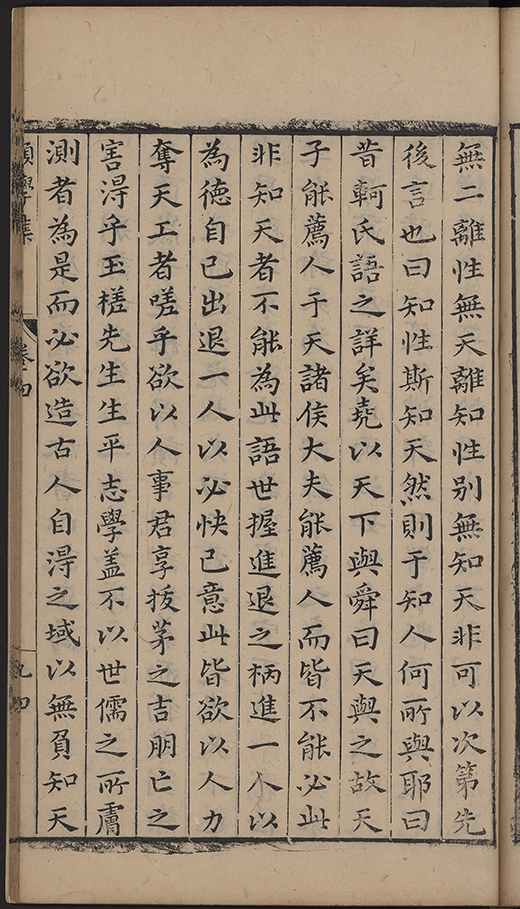 無二離性無天離知性别無知天非可以次第先
後言也曰知性斯知天然則于知人何所與耶曰
昔軻氏語之詳矣堯以天下與舜曰天與之故天
子能薦人于天諸侯大夫能薦人而皆不能必此
非知天者不能為此語世握進退之柄進一人以
為徳自已出退一人以必快已意此皆欲以人力
奪天工者嗟乎欲以人事君享拔茅之吉朋亡之
害淂乎玉槎先生生平志學盖不以世儒之所膚
測者為是而必欲造古人自淂之域以無負知天
願學集
卷四
九四